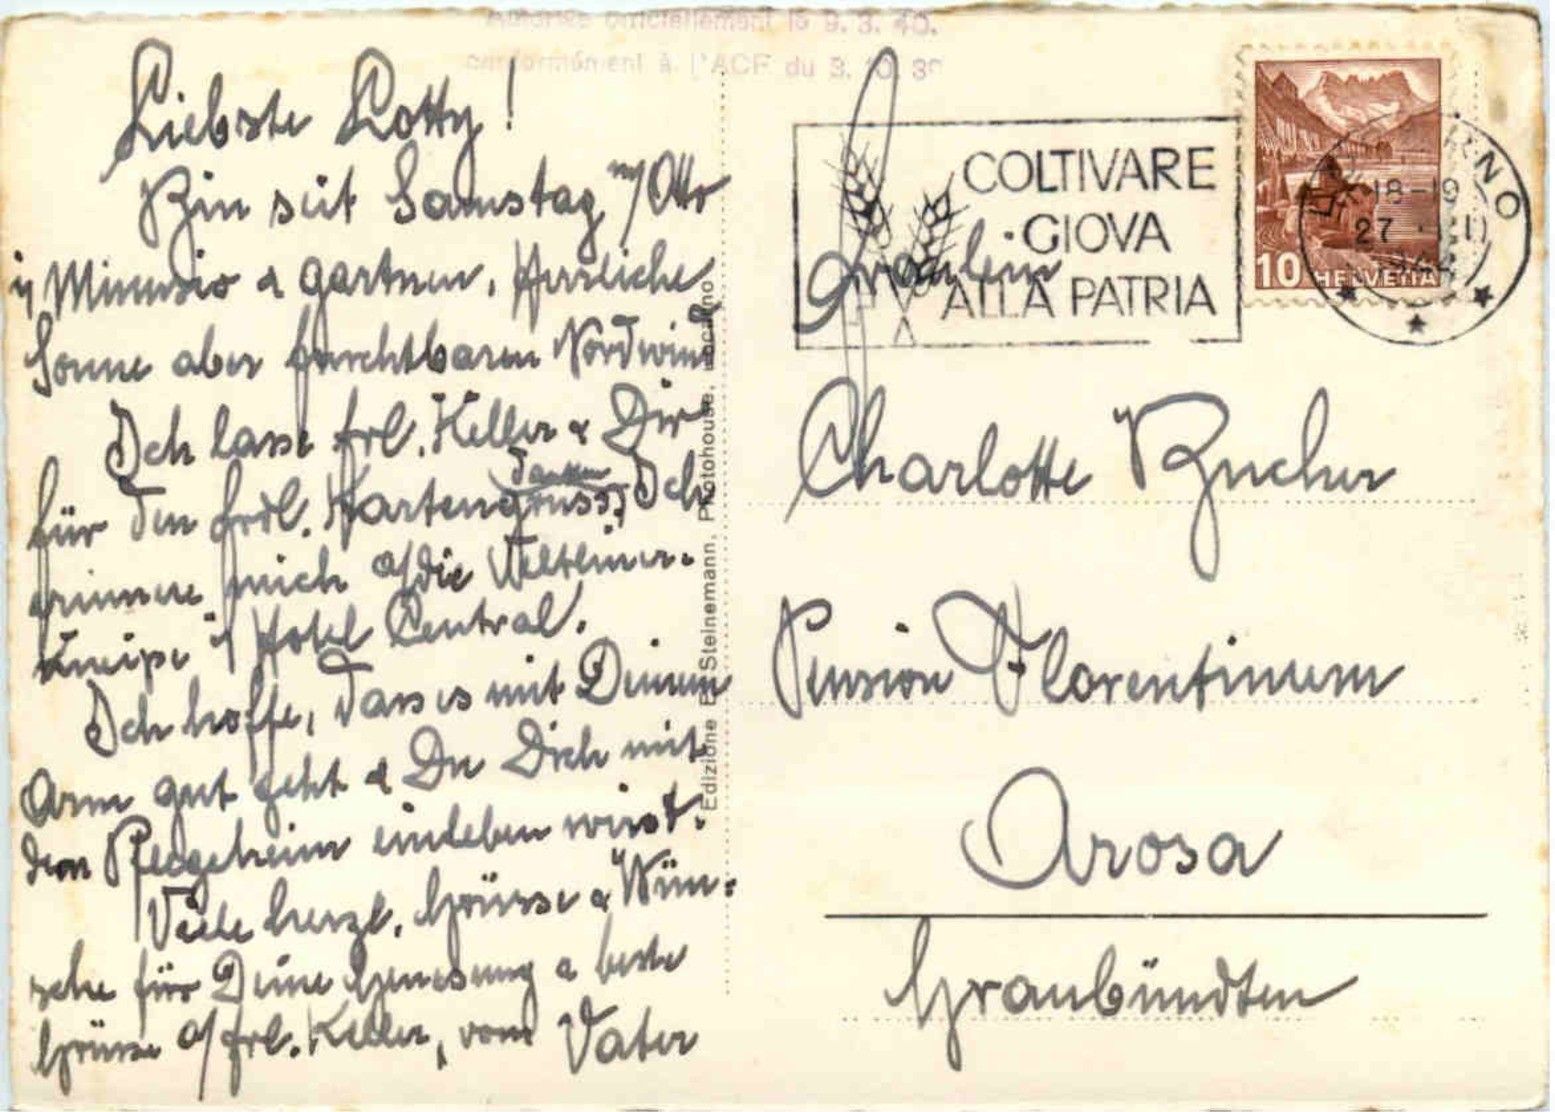 Autorisé officiellement le 9. 3. 40.
conformément à l'ACF du 3. 10. 39
Liebste Lotty!
Bin seit Samstag m/Otto
i/ Minusio & gärtnern. Herrliche
Sonne aber furchtbaren Nordwind
Ich lasse Frl. Keller & Dir
danken
für den frdl. Kartengruss, Ich
erinnere mich a/die Veltliner-
kneipe i/ Hotel Central.
Ich hoffe, dass es mit Deinem
Arm gut geht & Du Dich mit
dem Pflegeheim einleben wirst.
Viele herzl. Grüsse & Wün-
sche für Deine Genesung & beste
Grüsse a/Frl. Keller, vom Vater
Edizione E. Steinemann, Photohouse, Locarno
COLTIVARE
GIOVA
ALLA PATRIA
LOCARNO
18-19
27
10 HELVETIA
Fräulein
Charlotte Bucher
Pension Florentinum
Arosa
Graubündten